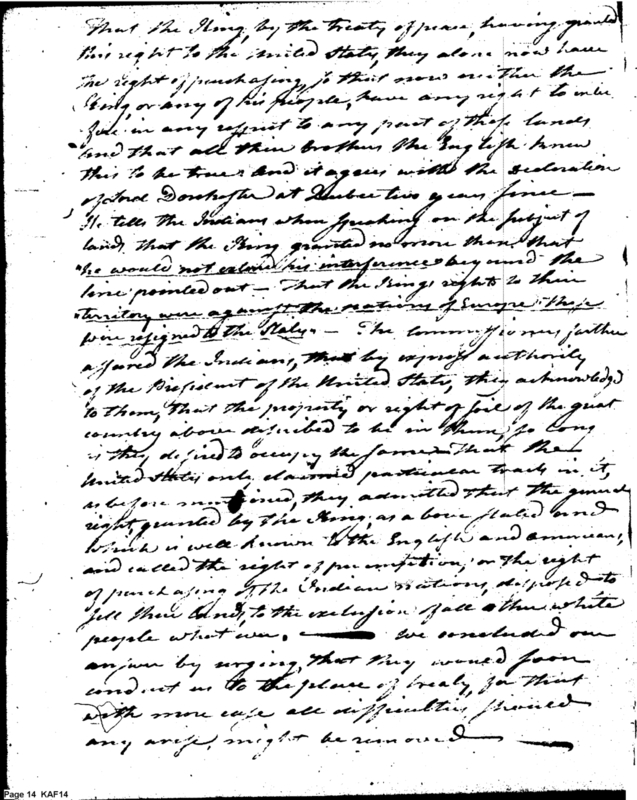 That the King, by the treaty of peace, having granted
this right to the United States, they alone now have
the right of purchasing, so that now neither the
King, or any of his people, have any right to inter
fere in any respect to any part of these lands
and that all their brothers the English knew
this to be true. And it agrees with the Declaration
of Lord Dorchester at Quebec two years since —
He tells the Indians when speaking on the subject of
lands, that the King granted no more then that
"he would not extend his interference beyond the
line pointed out — That the Kings rights to their
"territory were against the nations of Europe these
were resigned to the States" — The Commissioners further
assured the Indians, that by express authority
of the President of the United States, they acknowledged
to them, that the property or right of soil of the great
country above described to be in them, so long
as they desired to occupy the same. That the
United States only claimed particular tracts in it,
as before mentioned, they admitted that the general
right, granted by the King, as above stated and
which is well known to the English and americans,
and called the right of preemption, or the right
of purchasing of the Indian nations, disposed to
sell their lands, to the exclusion of all other white
people what ever. — We concluded our
answer by urging, that they would soon
conduct us to the place of treaty, for that
with more ease all difficulties should
any arise, might be removed —
Page 14 KAF14